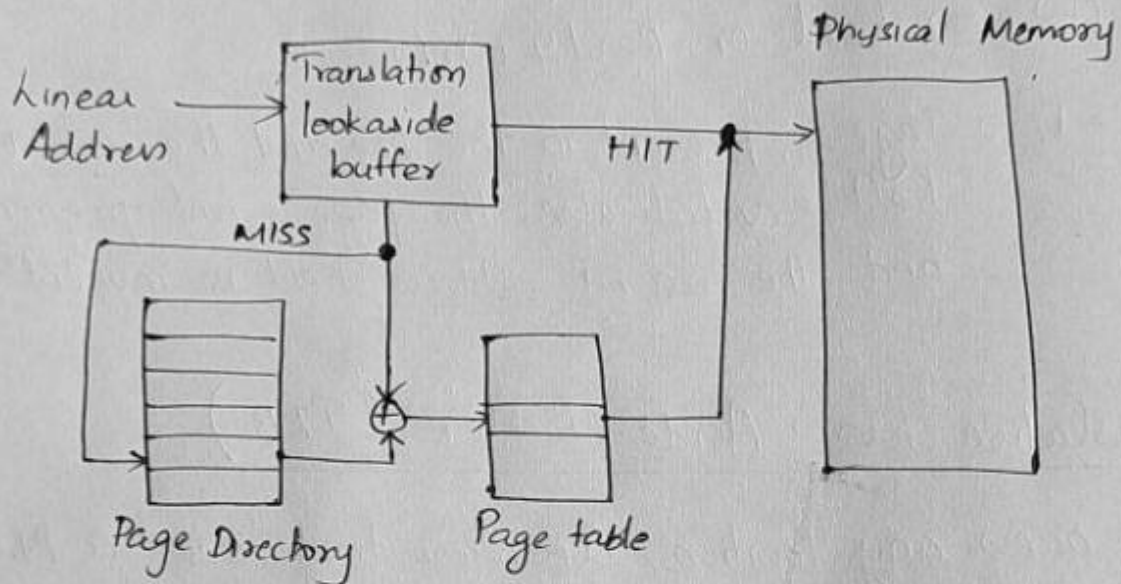 Physical Memory
Linear
Address
Translation
lookaside
buffer
HIT
MISS
Page Directory
Page table